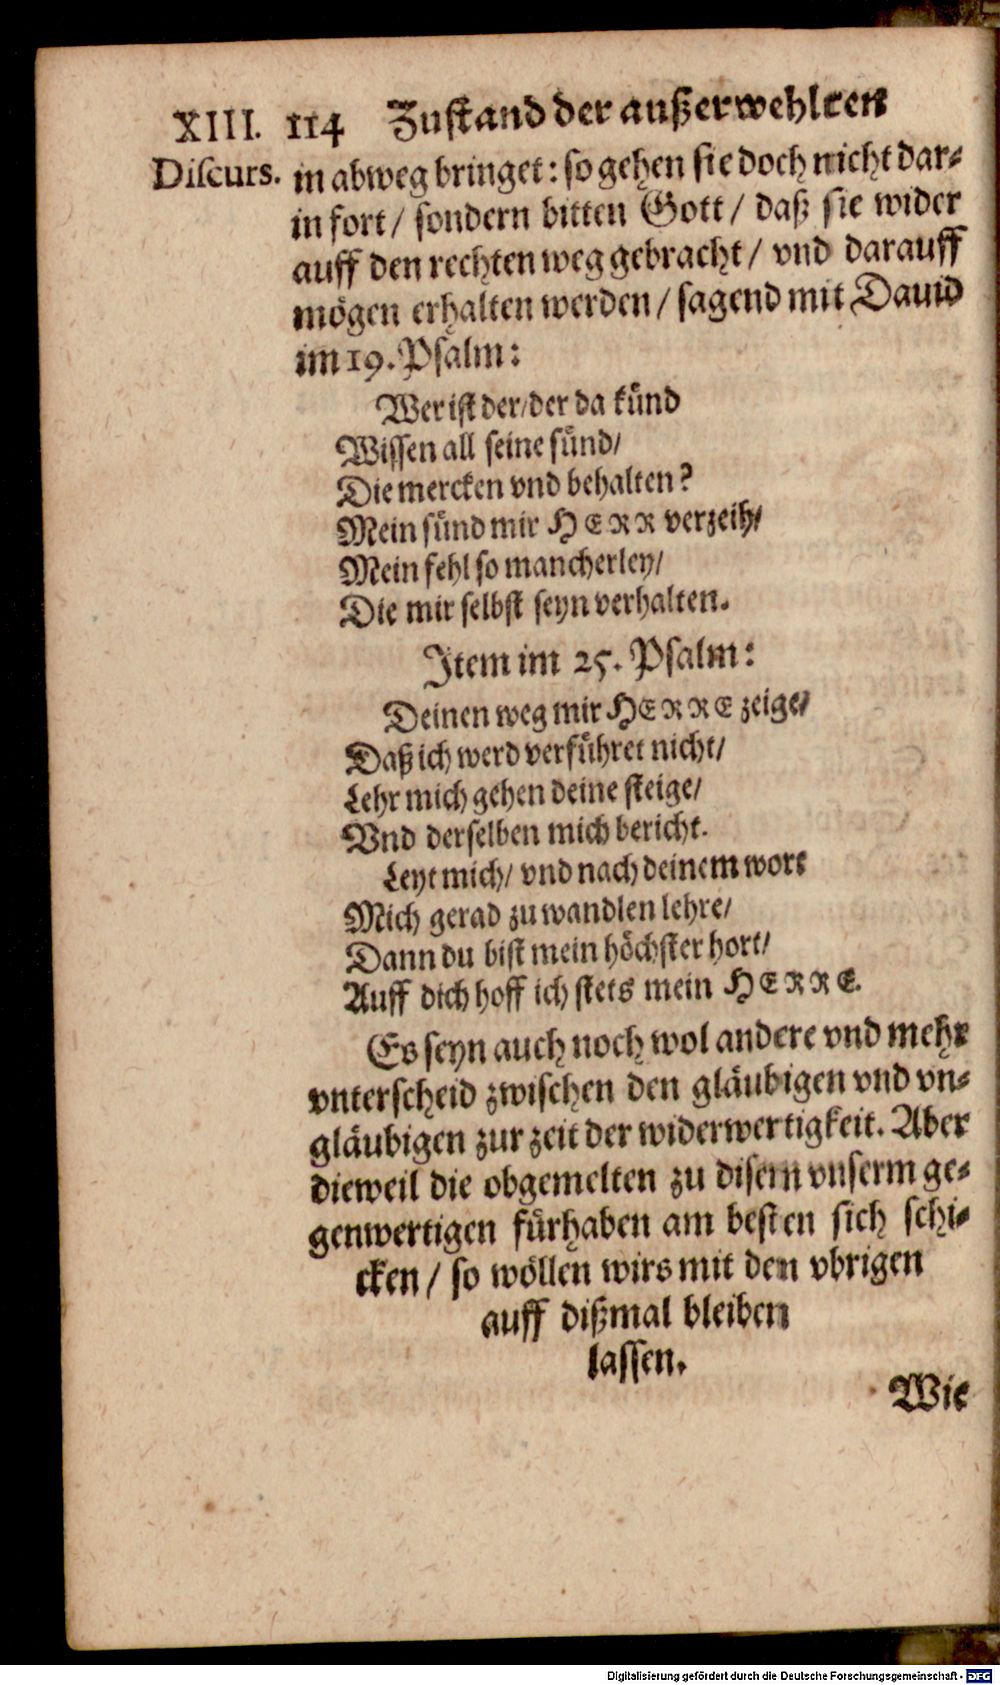 XIII. 114 Zustand der außerwehlten
Discurs. in abweg bringet: so gehen sie doch nicht dar-
in fort / sondern bitten Gott / daß sie wider
auff den rechten weg gebracht / vnd darauff
mögen erhalten werden / sagend mit Dauid
im 19. Psalm:
Wer ist der/ der da künd
Wissen all seine sünd/
Die mercken vnd behalten?
Mein sünd mir HERR verzeih/
Mein fehl so mancherley/
Die mir selbst seyn verhalten.
Item im 25. Psalm:
Deinen weg mir HERRE zeige/
Daß ich werd verführet nicht/
Lehr mich gehen deine steige/
Vnd derselben mich bericht.
Leyt mich/ vnd nach deinem wort
Mich gerad zu wandlen lehre/
Dann du bist mein höchster hort/
Auff dich hoff ich stets mein HERRE.
Es seyn auch noch wol andere vnd mehr
vnterscheid zwischen den gläubigen vnd vn-
gläubigen zur zeit der widerwertigkeit. Aber
dieweil die obgemelten zu disem vnserm ge-
genwertigen fürhaben am besten sich schi-
cken / so wöllen wirs mit den vbrigen
auff dißmal bleiben
lassen.
Wie
Digitalisierung gefördert durch die Deutsche Forschungsgemeinschaft - DFG